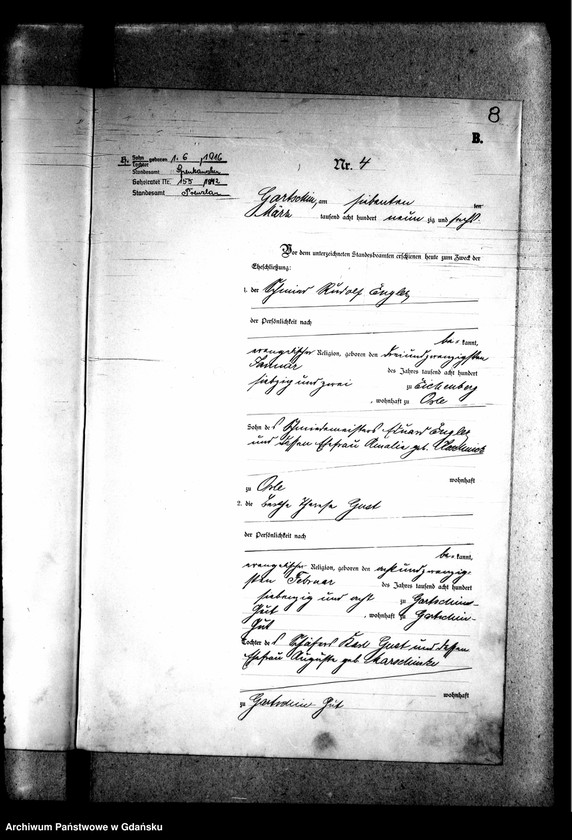 8
B.
B. Sohn geboren 1. 6. 1916
Tochter
Standesamt
Geheiratet Nr. 155 1942
Standesamt
Nr. 4
Gartschin, am siebenten ten
März tausend acht hundert neun zig und sechs.
Vor dem unterzeichneten Standesbeamten erschienen heute zum Zweck der
Eheschließung:
1. der Schmied Rudolf Engler
der Persönlichkeit nach
be- kannt,
evangelischer Religion, geboren den dreiundzwanzigsten
Januar des Jahres tausend acht hundert
siebzig und zwei zu Eichenberg
, wohnhaft zu Orle
Sohn des Schmiedemeisters Eduard Engler
und dessen Ehefrau Amalie geb.
wohnhaft
zu Orle
2. die Bertha Therese Gust
der Persönlichkeit nach
be- kannt,
evangelischer Religion, geboren den achtundzwanzig-
sten Februar des Jahres tausend acht hundert
siebenzig und acht zu Gartschin-
Gut , wohnhaft zu Gartschin-
Gut
Tochter des Schäfers Karl Gust und dessen
Ehefrau Auguste geb. Marschinke
wohnhaft
zu Gartschin Gut
Archiwum Państwowe w Gdańsku